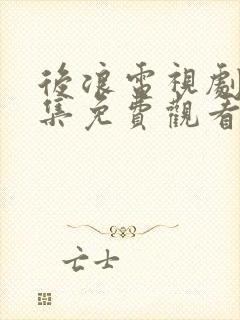 後浪電視劇
集免費觀看
亡士